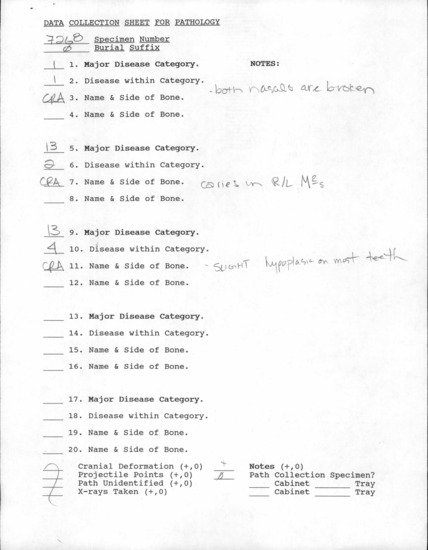 DATA COLLECTION SHEET FOR PATHOLOGY
7268 Specimen Number
Ø Burial Suffix
1 1. Major Disease Category. NOTES:
1 2. Disease within Category.
- both nasals are broken
CRA 3. Name & Side of Bone.
4. Name & Side of Bone.
13 5. Major Disease Category.
2 6. Disease within Category.
CRA 7. Name & Side of Bone. caries in R/L M3s
8. Name & Side of Bone.
13 9. Major Disease Category.
4 10. Disease within Category.
CRA 11. Name & Side of Bone. - SLIGHT hypoplasia on most teeth
12. Name & Side of Bone.
13. Major Disease Category.
14. Disease within Category.
15. Name & Side of Bone.
16. Name & Side of Bone.
17. Major Disease Category.
18. Disease within Category.
19. Name & Side of Bone.
20. Name & Side of Bone.
Cranial Deformation (+,0) + Notes (+,0)
Projectile Points (+,0) Ø Path Collection Specimen?
Path Unidentified (+,0) Cabinet Tray
X-rays Taken (+,0) Cabinet Tray